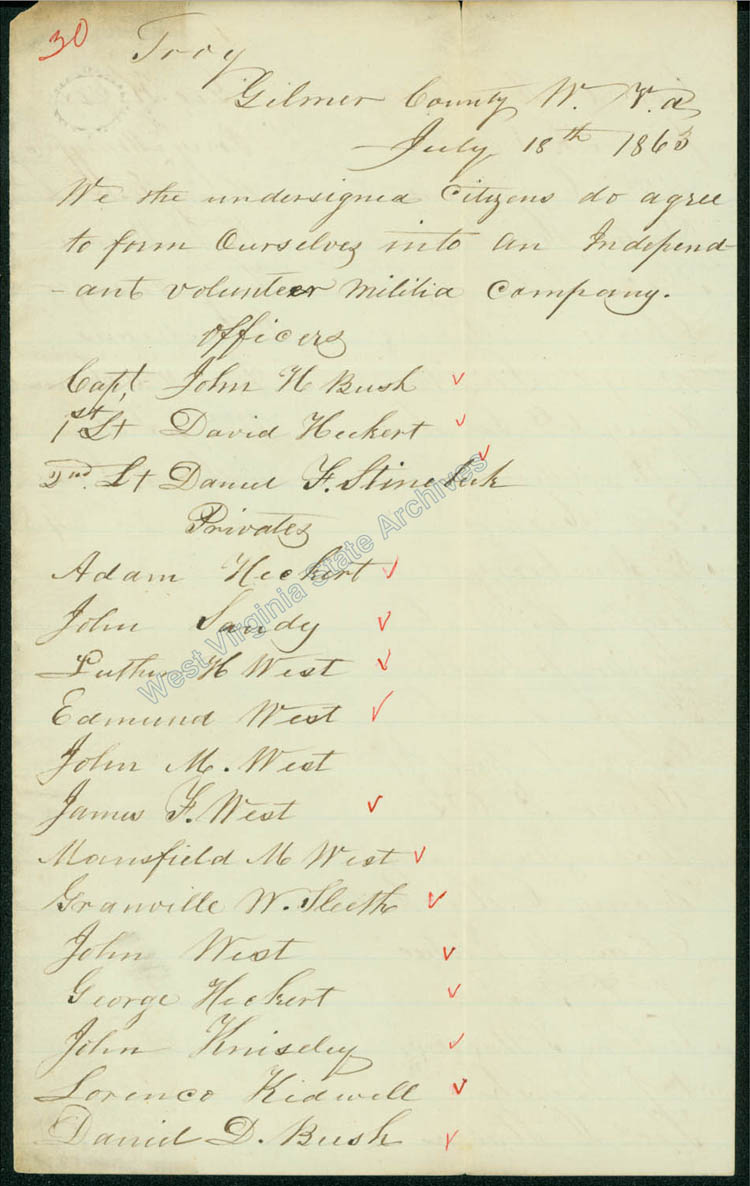 30
Troy
Gilmer County W. V.a
July 18th 1863
We the undersigned Citizens do agree
to form Ourselves into an Independ-
-ant volunteer Militia Company.
Officers
Capt, John H Bush
1st Lt David Heckert
2nd. Lt Daniel F. Stinebeck
Privates
Adam Heckert
John Sandy
Luther H West
Edmund West
John M. West
James F. West
Mansfield M West
Granville W. Sleeth
John West
George Heckert
John Kniseley
Lorenco Kidwell
David D. Bush
West Virginia State Archives